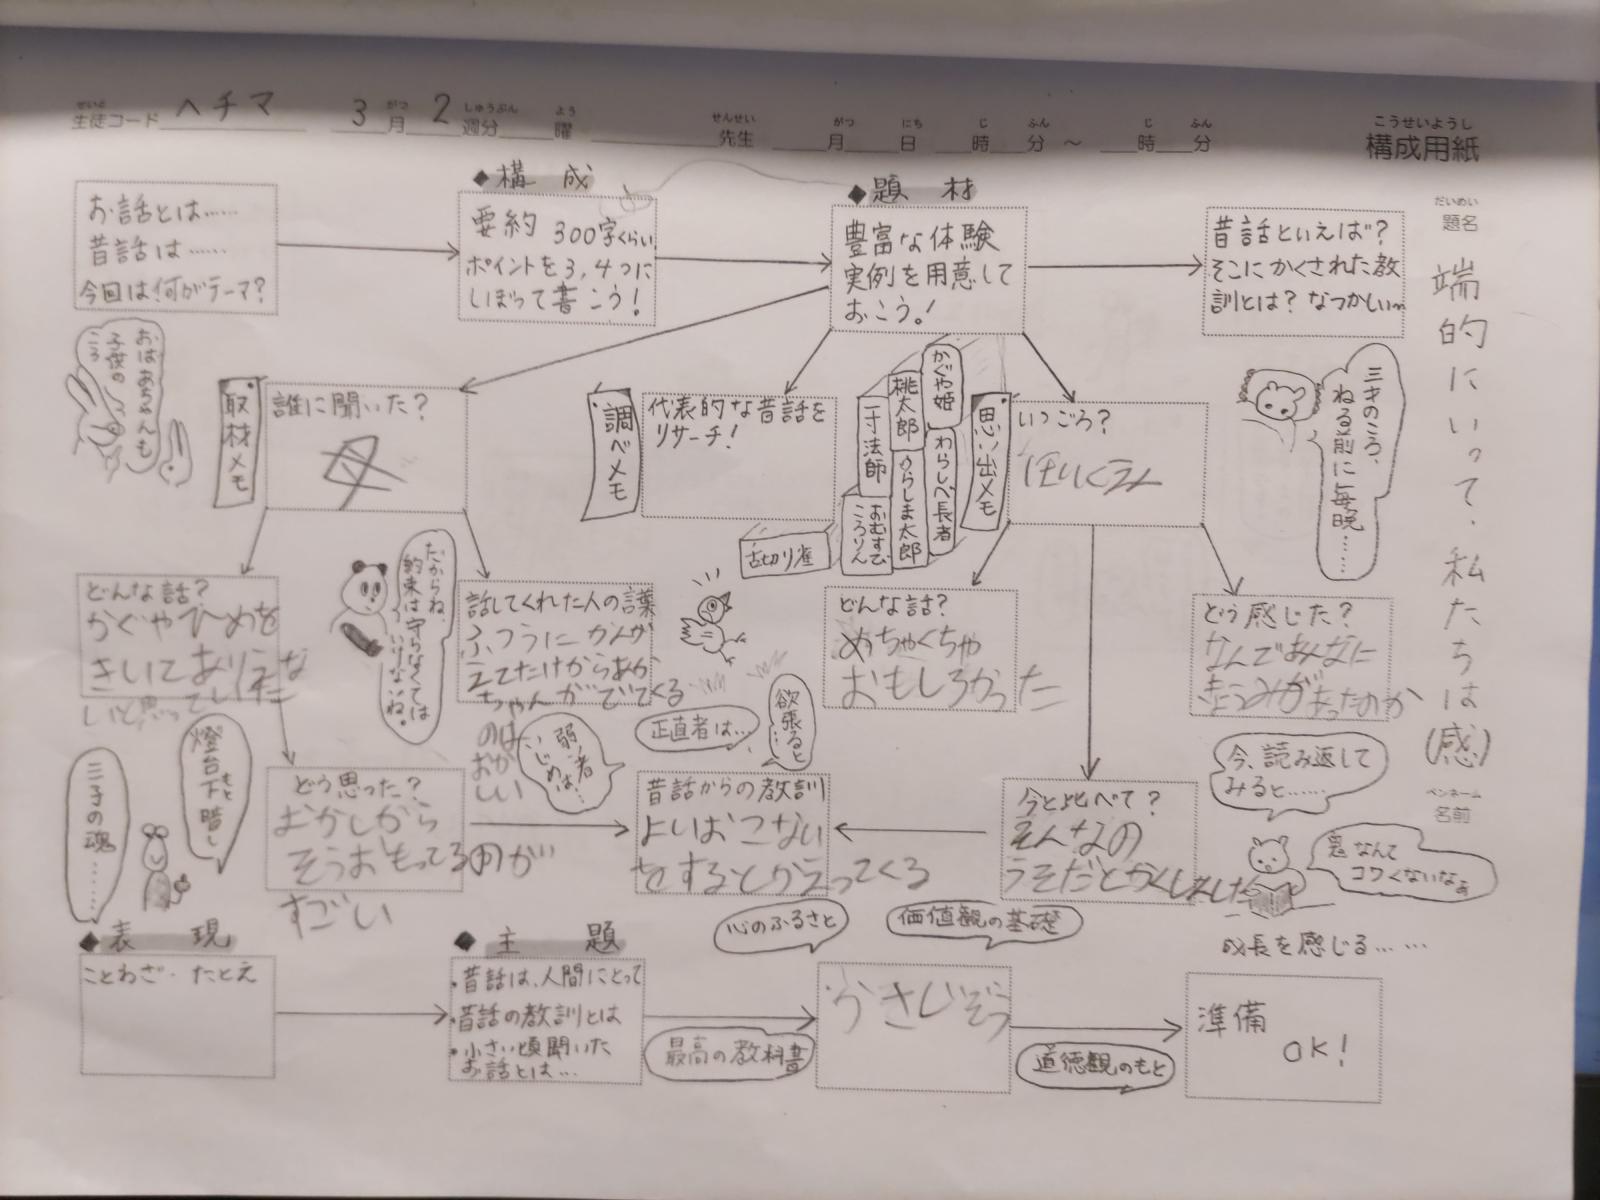 せいと がつ しゅうぶん よう せんせい がつ にち じ ふん じ ふん こうせいようし
生徒コード ヘチマ 3月 2週分 曜 先生 月 日 時 分 〜 時 分 構成用紙
お話とは……
昔話は……
今回は何がテーマ?
◆構成
要約 300字くらい
ポイントを3,4つに
しぼって書こう!
◆題材
豊富な体験
実例を用意して
おこう。!
昔話といえば?
そこにかくされた教
訓とは? なつかしい〜
だいめい
題名
端的にいって、私たちは(感)
ペンネーム
名前
おばあちゃんも
子供の
ころ
取材メモ
誰に聞いた?
母
調べメモ
代表的な昔話を
リサーチ!
かぐや姫
桃太郎
一寸法師
わらしべ長者
うらしま太郎
おむすび
ころりん
舌切り雀
思い出メモ
いつごろ?
ほいくえん
三才のころ、
ねる前に毎晩……
どんな話?
かぐやひめを
きいてありえな
いと思っていた
だからね、
約束は守らなくては
いけないね。
話してくれた人の言葉
ふつうにかんが
えてたけからあか
ちゃんがでてくる
のは
おかしい
どんな話?
めちゃくちゃ
おもしろかった
どう感じた?
なんであんなに
きょうみがあったのか
正直者は…
欲張ると…
弱い者
いじめは…
今、読み返して
みると……
燈台下暗し
もと
三子の魂……
どう思った?
おかしから
そうおもってるのが
すごい
昔話からの教訓
よいおこない
をするとかえってくる
今と比べて?
そんなの
うそだとかくしました
鬼なんて
コワくないなぁ
心のふるさと
価値観の基礎
成長を感じる……
◆表現
ことわざ・たとえ
◆主題
・昔話は、人間にとって
・昔話の教訓とは
・小さい頃聞いた
お話とは…
最高の教科書
かさじぞう
道徳観のもと
準備
OK!